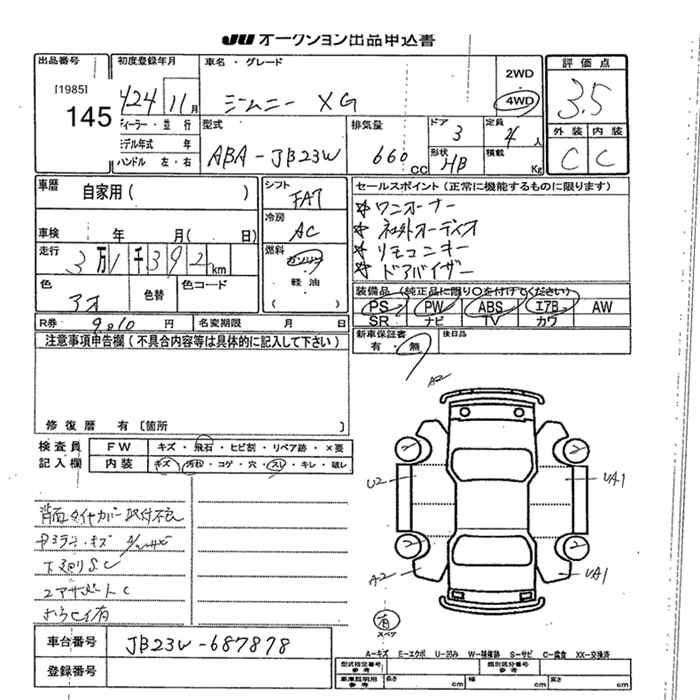 JU オークション出品申込書
出品番号
[1985]
145
初度登録年月
H24 11 月
ディーラー・並行
モデル年式 年
ハンドル 左・右
車名・グレード
ジムニー XG
2WD
4WD
型式
ABA-JB23W
排気量
660 CC
ドア 3
形状 HB
定員 4 人
積載 Kg
評価点
3.5
外装 内装
C C
車歴 自家用( )
車検 年 月( 日)
走行 3万1千392km
色 アオ
色替
色コード
シフト FAT
冷房 AC
燃料 ガソリン
軽油
( )
セールスポイント(正常に機能するものに限ります)
☆ワンオーナー
☆社外オーディオ
☆リモコンキー
☆ドアバイザー
装備品(純正品に限り○を付けてください)
PS PW ABS エアB AW
SR ナビ TV カワ
R券 9010 円 名変期限 月 日
新車保証書 後日品
有・無
注意事項申告欄(不具合内容等は具体的に記入して下さい)
修復歴 有〔箇所 〕
検査員記入欄
FW キズ・飛石・ヒビ割・リペア跡・×要
内装 キズ・汚れ・コゲ・穴・スレ・キレ・破レ
背面タイヤカバー取付不良
下廻りS.C
A2
U2
UA1
A2
UA1
2
2
2
2
有
スペア
車台番号 JB23W-687878
登録番号
A-キズ E-エクボ U-凹み W-補修跡 S-サビ C-腐食 XX-交換済
型式指定番号 参考
類別区分番号 参考
車庫証明用 参考
長さ cm 幅 cm 高さ cm